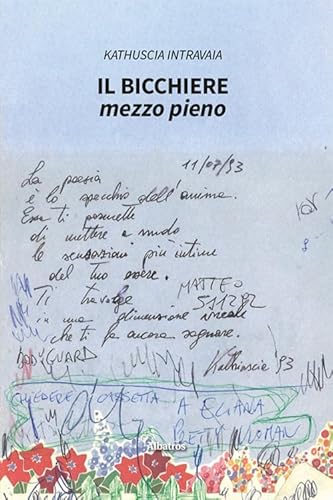 KATHUSCIA INTRAVAIA
IL BICCHIERE
mezzo pieno
11/07/93
La poesia
è lo specchio dell'anima.
Essa ti permette
di mettere a nudo
le sensazioni più intime
del tuo essere.
MATTEO
511282
Ti travolge
in una dimensione irreale
che ti fa ancora sognare.
BODYGUARD
Kathiuscia '93
CHIEDERE CASSETTA A ELIANA
PRETTY WOMAN
albatros